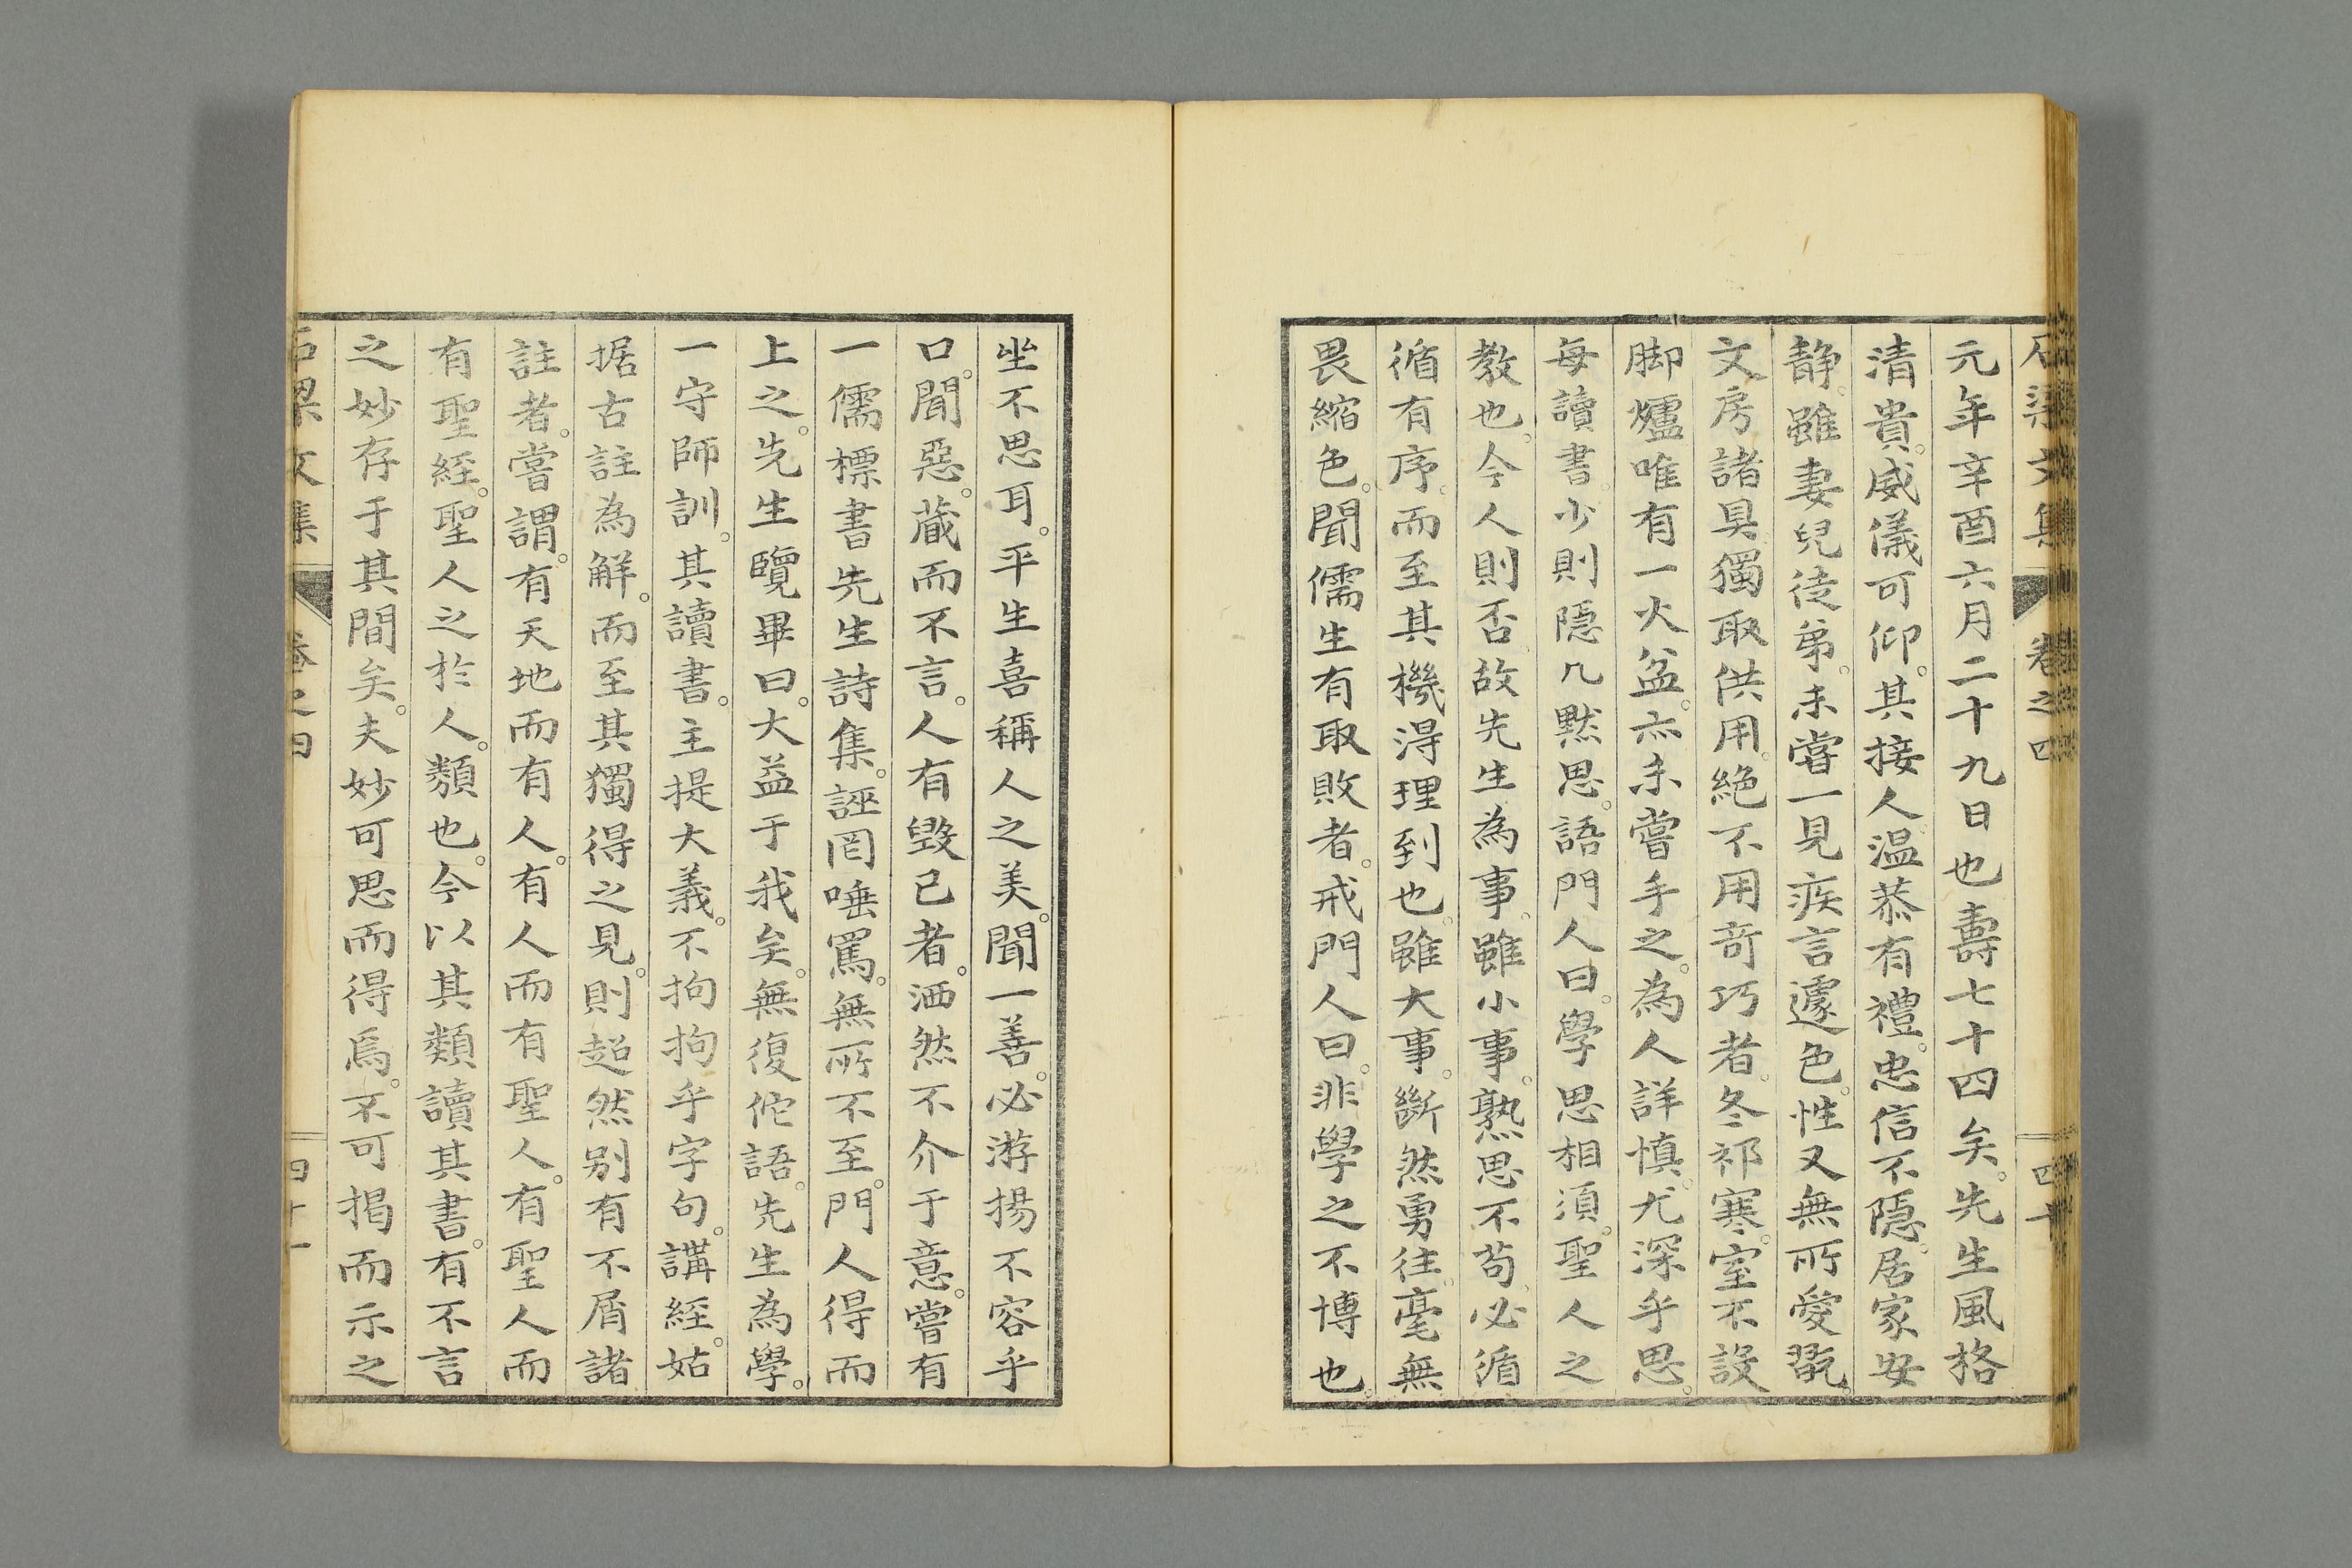 石梁文集 卷之四 四十
元年辛酉六月二十九日也壽七十四矣。先生風格
清貴。威儀可仰。其接人温恭有禮。忠信不隱。居家安
静。雖妻兒徒弟。未嘗一見疾言遽色。性又無所愛翫。
文房諸具獨取供用。絶不用竒巧者。冬祁寒。室不設
脚爐唯有一火盆。亦未嘗手之。為人詳慎。尤深乎思。
每讀書。少則隱几默思。語門人曰。學思相須。聖人之
教也。今人則否。故先生為事。雖小事。熟思不苟。必循
循有序。而至其機淂理到也。雖大事。斷然勇往。毫無
畏縮色。聞儒生有取敗者。戒門人曰。非學之不博也。
坐不思耳。平生喜稱人之美。聞一善。必游揚不容乎
口。聞惡。蔵而不言。人有毀己者。洒然不介于意。嘗有
一儒標書先生詩集。誣罔唾罵。無所不至。門人得而
上之。先生覽畢曰。大益于我矣。無復佗語。先生為學。
一守師訓。其讀書。主提大義。不拘拘乎字句。講經。姑
据古註為解。而至其獨得之見。則超然别有不屑諸
註者。嘗謂。有天地而有人。有人而有聖人。有聖人而
有聖經。聖人之於人。類也。今以其類讀其書。有不言
之妙存于其間矣。夫妙可思而得焉。不可揭而示之
石梁文集 卷之四 四十一